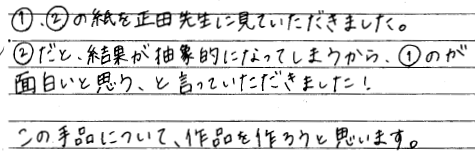 ①、②の紙を正田先生に見ていただきました。
②だと、結果が抽象的になってしまうから、①のが
面白いと思う、と言っていただきました！
この手品について、作品を作ろうと思います。